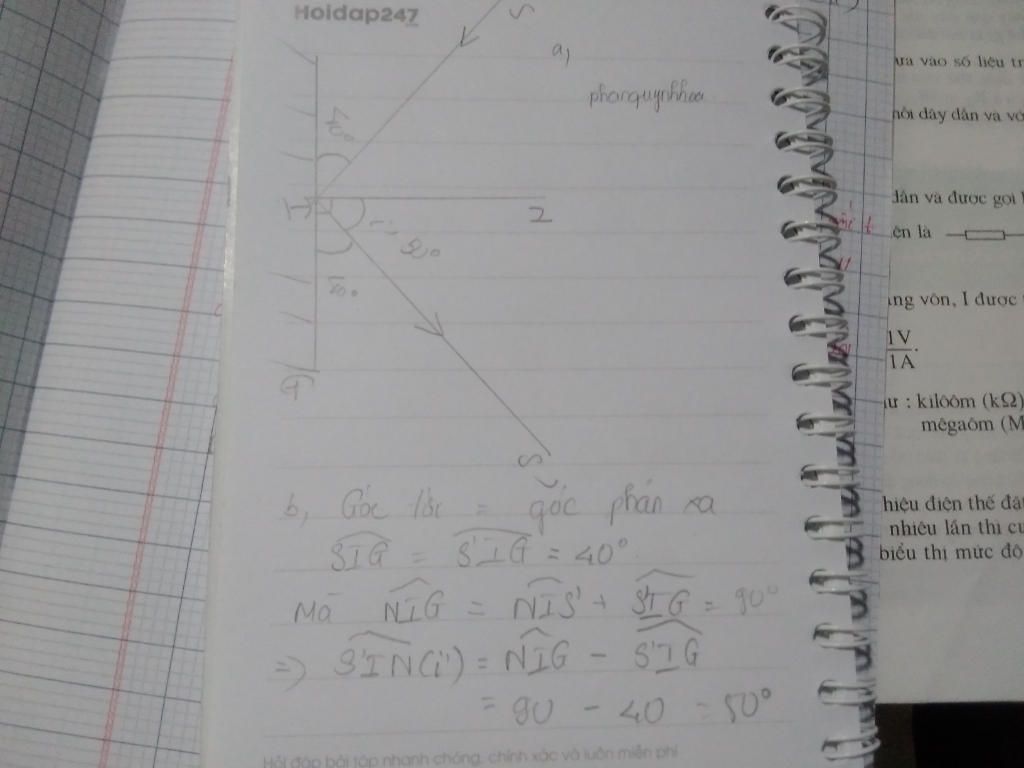 Hoidap247
S
a,
phanquynhhoa
40°
I
N
i'= 50°
40°
G
S'
b, Góc tới = góc phản xạ
SIG = S'IG = 40°
Mà NIG = NIS' + S'IG = 90°
=> S'IN(i') = NIG - S'IG
= 90 - 40 = 50°
Hỏi đáp bài tập nhanh chóng, chính xác và luôn miễn phí
ựa vào số liệu tr
nỗi dây dẫn và vớ
dẫn và được gọi
ện là
ằng vôn, I được
1V
1A
ư : kilôôm (kΩ)
mêgaôm (M
hiệu điện thế đặ
nhiêu lần thì cư
biểu thị mức độ